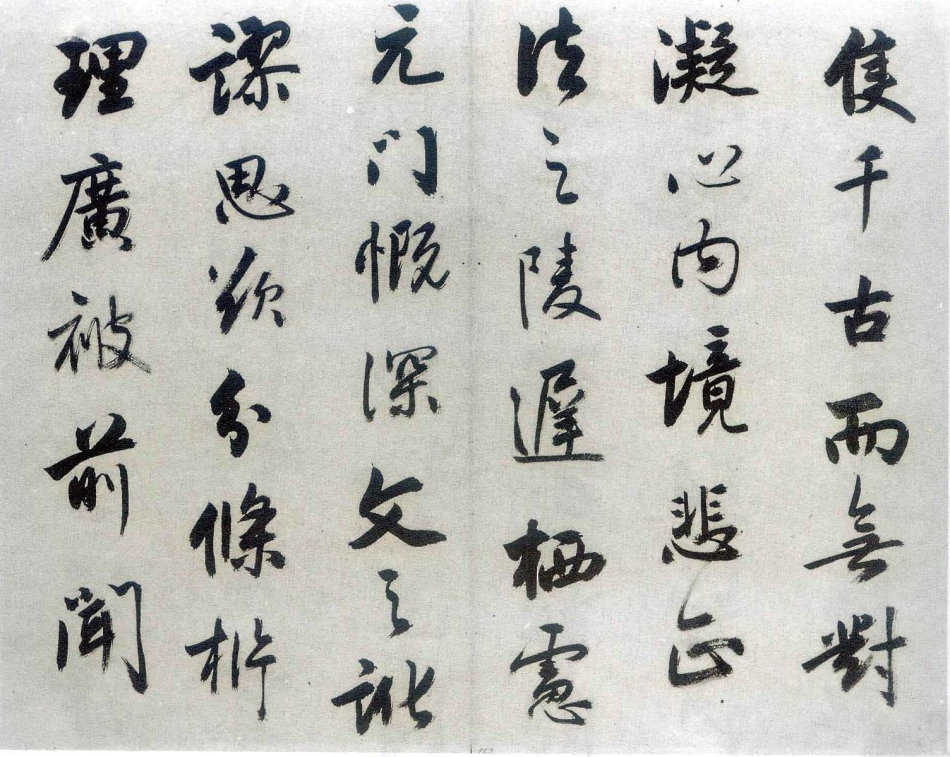 隻千古而無對
凝心内境悲正
法之陵遲栖慮
元門慨深文之訛
謬思欲分條析
理廣被前聞